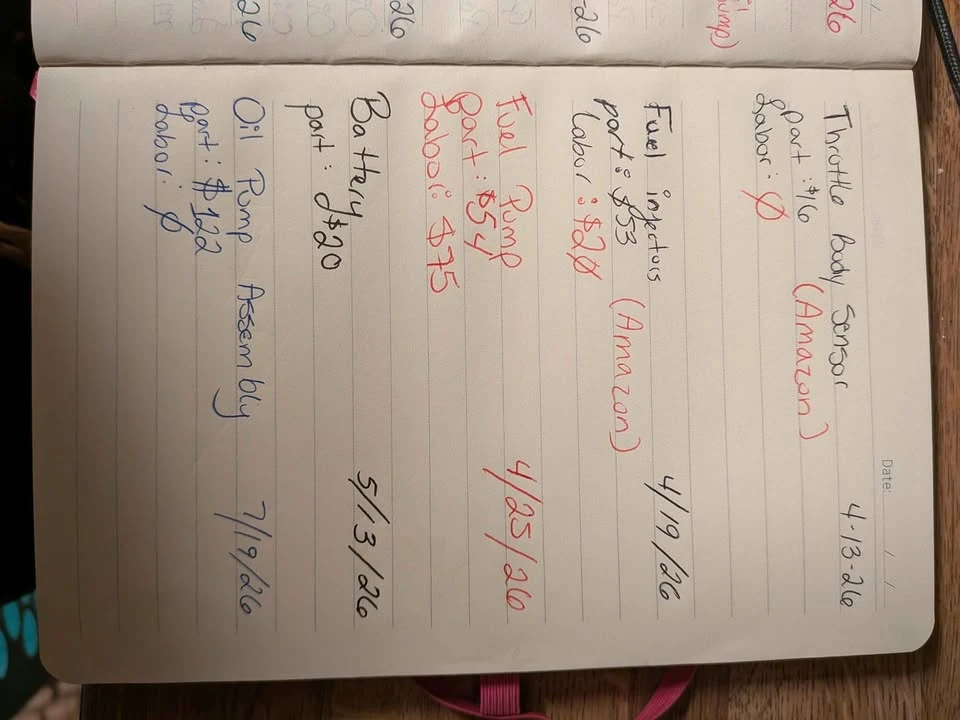 Date: / /
Throttle Body Sensor 4-13-26
part: $16 (Amazon)
Labor: Ø
Fuel injectors 4/19/26
part: $53 (Amazon)
labor: $2Ø
Fuel Pump 4/25/26
Part: $54
Labor: $75
Battery 5/13/26
part: $20
Oil Pump Assembly 7/19/26
part: $122
Labor: Ø
26
-26
26
26